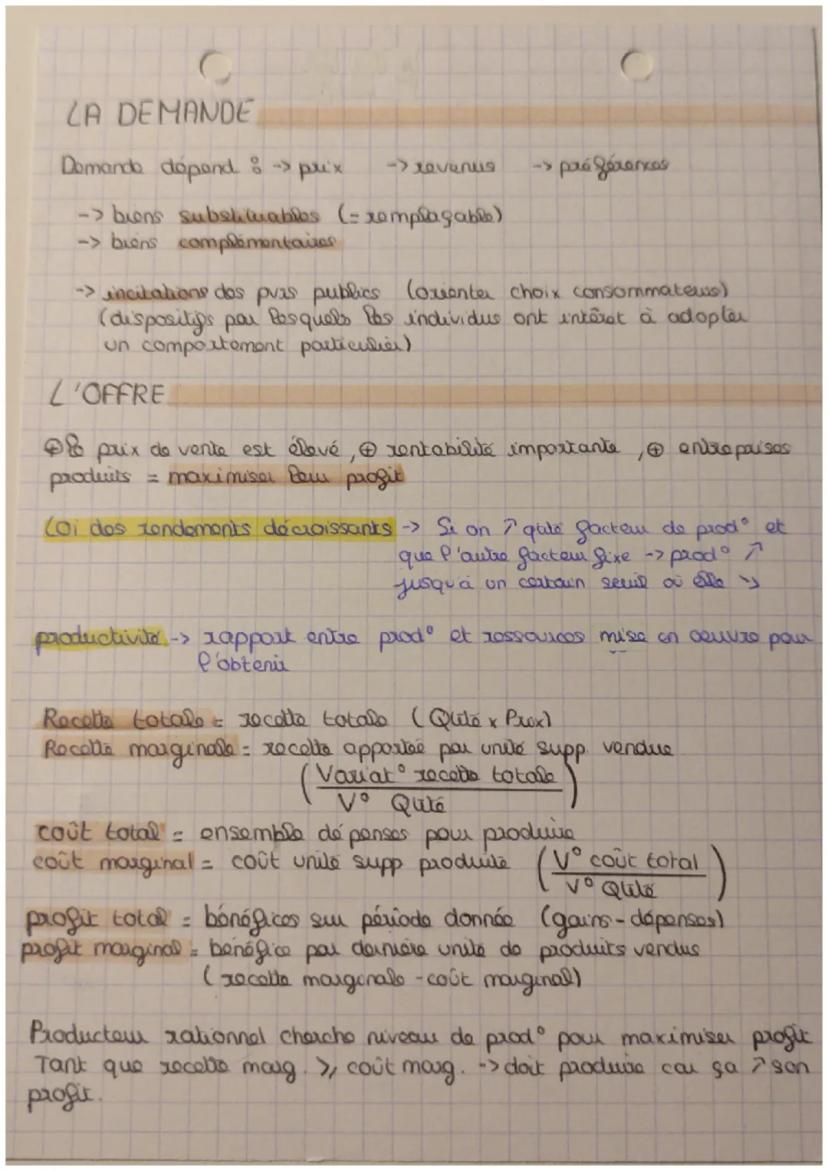 LA DEMANDE
Demande dépend : -> prix -> revenus -> préférences
-> biens substituables (= remplaçable)
-> biens complémentaires
-> incitations des pvrs publics (orienter choix consommateurs)
(dispositifs par lesquels les individus ont intérêt à adopter
un comportement particulier)
L'OFFRE
⊕ le prix de vente est élevé, ⊕ rentabilité importante, ⊕ entreprises
produits = maximiser leur profit
Loi des rendements décroissants -> Si on ↗ qté facteur de prod° et
que l'autre facteur fixe -> prod° ↗
jusqu'à un certain seuil où elle ↘
productivité -> rapport entre prod° et ressources mise en oeuvre pour
l'obtenir
Recette totale = recette totale (Qtité x Prix)
Recette marginale = recette apportée par unité supp. vendue
(Variat° recette totale
V° Qtité)
coût total = ensemble dépenses pour produire
coût marginal = coût unité supp produite (V° coût total
V° Qtité)
profit total = bénéfices sur période donnée (gains - dépenses)
profit marginal = bénéfice par dernière unité de produits vendus
(recette marginale - coût marginal)
Producteur rationnel cherche niveau de prod° pour maximiser profit
Tant que recette marg. ⩾ coût marg. -> doit produire car ça ↗ son
profit.